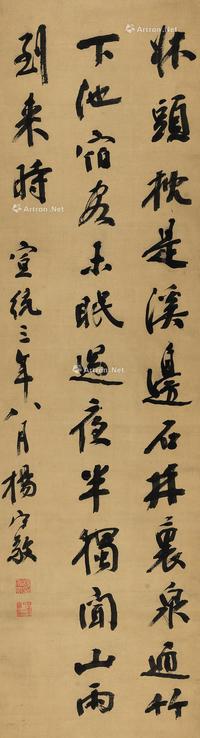 牀頭枕是溪邊石井裏泉通竹
下池宿客未眠過夜半獨聞山雨
到来時 宣統三年八月楊守敬
Artron.Net
Artron.Net
Artron.Net
Artron.Net